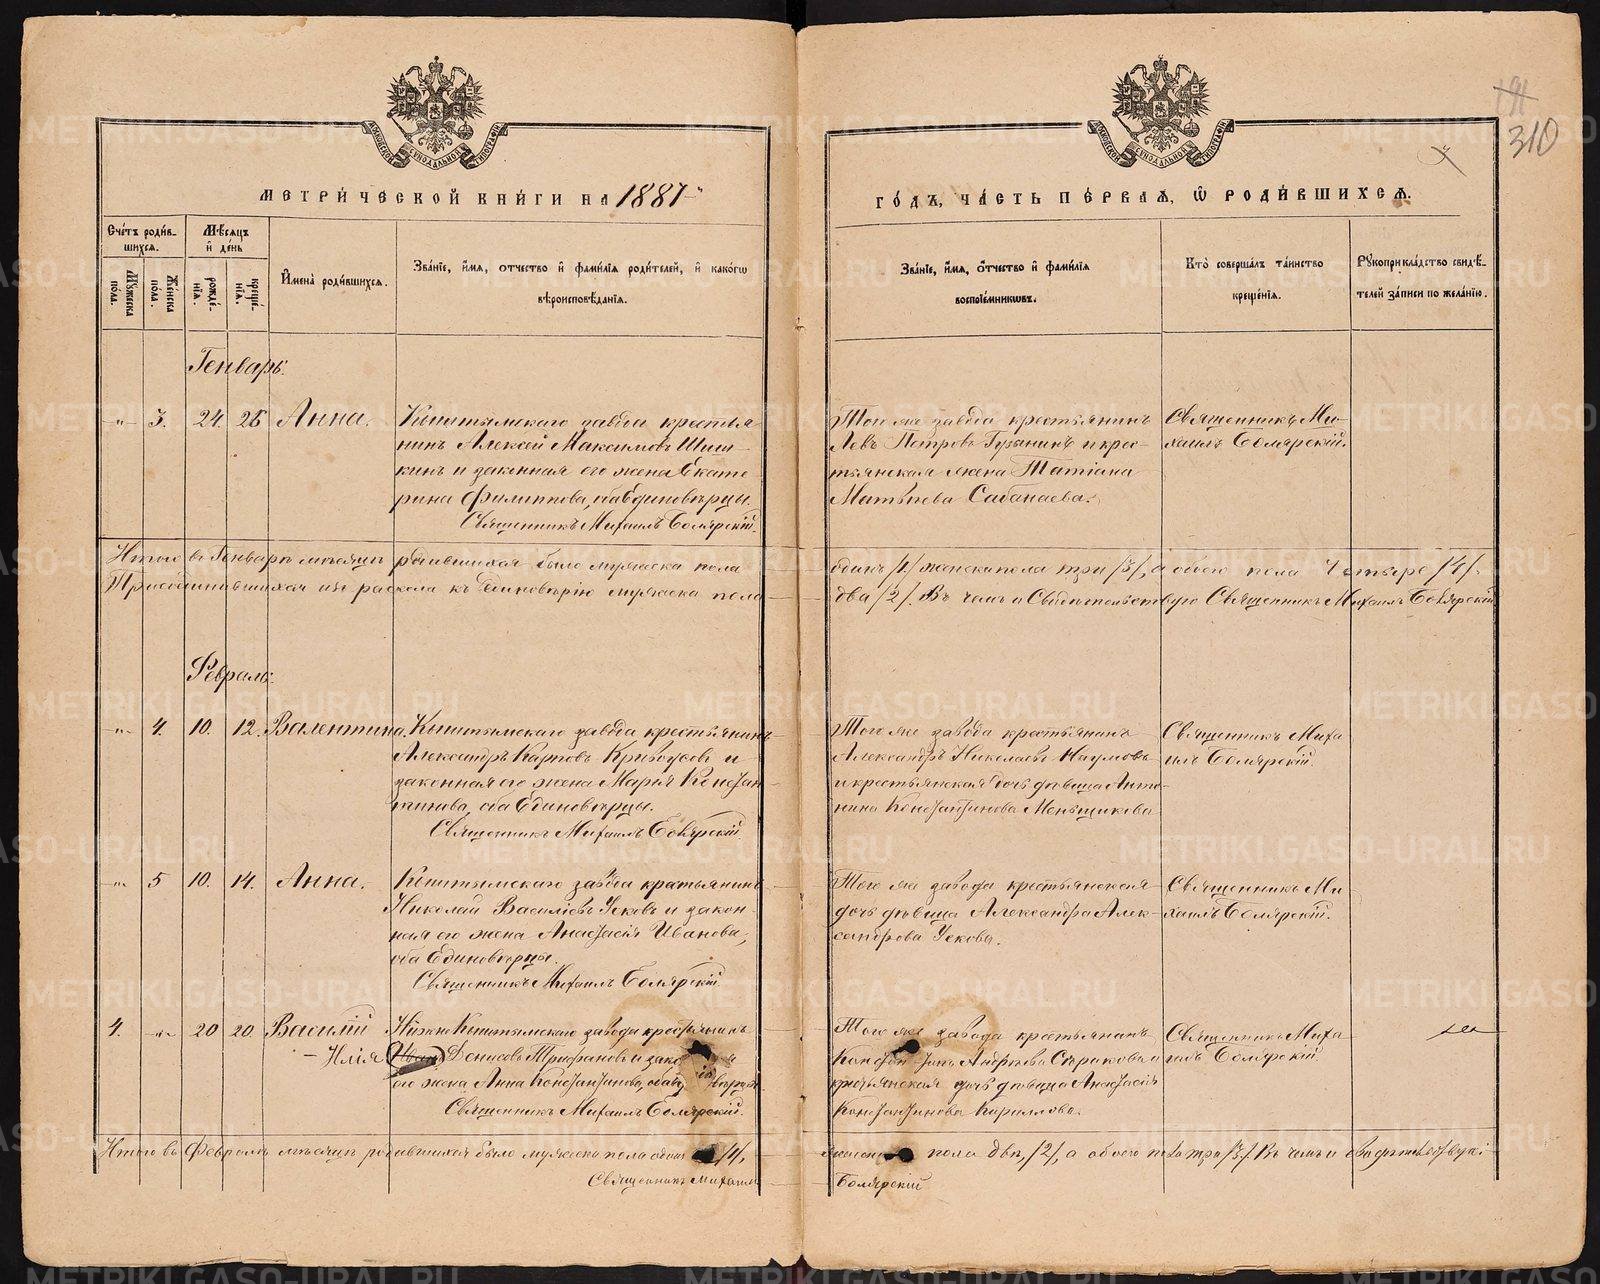 191
310
МОСКОВСКОЙ СѴНОДАЛЬНОЙ ТИПОГРАФІИ
МОСКОВСКОЙ СѴНОДАЛЬНОЙ ТИПОГРАФІИ
МЕТРИ́ЧЕСКОЙ КНИ́ГИ НА 1887
ГО́ДЪ, ЧА́СТЬ ПЕ́РВАѦ, Ѽ РОДИ́ВШИХСѦ.
Сче́тъ роди́в-
шихся.
Му́жеска по́ла.
Же́нска по́ла.
Мѣ́сяцъ и де́нь
рожде́-нія.
креще́-нія.
Имена̀ роди́вшихся.
Зва́ніе, и́мя, о́тчество и фами́лія роди́телей, и како́гѡ
вѣроисповѣ́данія.
Зва́ніе, и́мя, о́тчество и фами́лія
воспріе́мникѡвъ.
Кто̀ соверша́лъ та́инство
креще́нія.
Рꙋкоприкла́дство свидѣ́-
телей за́писи по жела́нію.
Генварь.
" 3. 24. 25 Анна.
Кыштымскаго завода крестья-
нинъ Алексѣй Максимовъ Шиш-
кинъ и законная его жена Екате
рина Филиппова, оба Единовѣрцы.
Священникъ Михаилъ Боярскій.
Того же завода крестьянинъ
Левъ Петровъ Гузынинъ и крес-
тьянская жена Татіана
Матвѣева Сабанаева.
Священникъ Ми-
хаилъ Боярскій.
Итого въ Генварѣ мѣсяцѣ родившихся было мужеска пола
одинъ /1/ женска пола три /3/, а обоего пола четыре /4/.
Присоединившихся изъ раскола къ Единовѣрію мужеска пола
два /2/. Въ чемъ и Свидѣтельствую Священникъ Михаилъ Боярскій
Февраль.
" 4. 10. 12. Валентина.
Кыштымскаго завода крестьянинъ
Александръ Карповъ Кривоусовъ и
законная его жена Марія Констан-
тинова, оба Единовѣрцы.
Священникъ Михаилъ Боярскій
Того же завода крестьянинъ
Александръ Николаевъ Наумовъ
и крестьянская дочь дѣвица Анто-
нина Константинова Меньщикова
Священникъ Миха
илъ Боярскій.
" 5 10. 14. Анна.
Кыштымскаго завода крстьянинъ
Николай Василіевъ Усковъ и закон-
ная его жена Анастасія Иванова,
оба Единовѣрцы.
Священникъ Михаилъ Боярскій
Того же завода крестьянская
дочь дѣвица Александра Алек-
сандрова Ускова.
Священникъ Ми
хаилъ Боярскій.
4. " 20 20. Василій
НижнеКыштымскаго завода крестьянинъ
– Илія Денисовъ Трифановъ и зако
его жена Анна Константинова, оба
Священникъ Михаилъ Боярскій.
Того же завода крестьянинъ
Андреевъ и
крестьянская дочь дѣвица Анастасія
Константинова Кириллова.
Священникъ Миха
илъ Боярскій.
Итого въ Февралѣ мѣсяцѣ родившихся было мужеска пола одинъ /1/,
женска пола двѣ /2/, а обоего пола три /3/. Въ чемъ и свидѣтельствую
Священникъ Михаилъ
Боярскій
METRIKI.GASO-URAL.RU